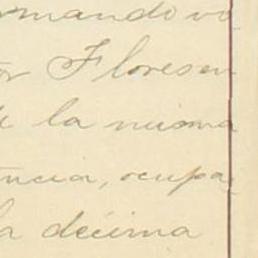 rmando vo
or Floresen
de la misma
encia, ocupa-
la décima